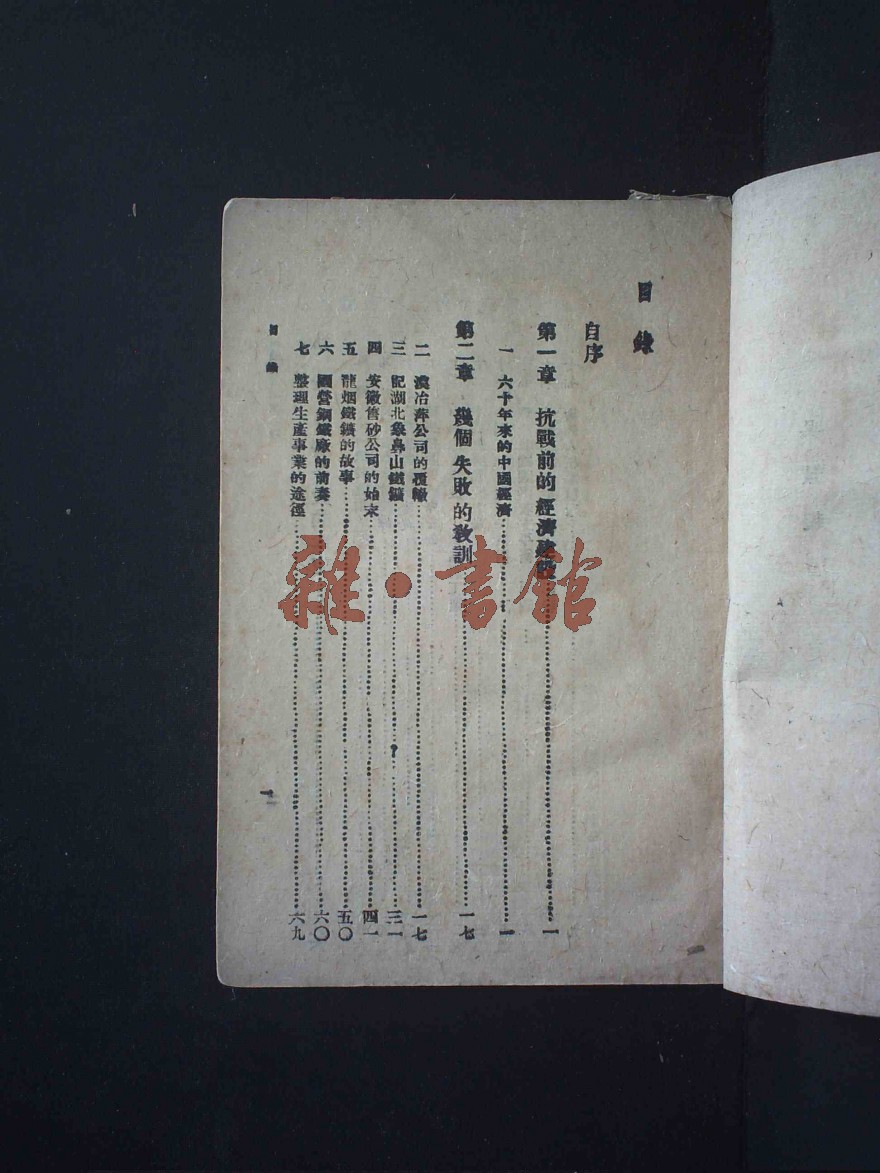 目錄
自序
第一章 抗戰前的經濟建設……一
一 六十年來的中國經濟……一
第二章 幾個失敗的教訓……一七
二 漢冶萍公司的覆轍……一七
三 記湖北象鼻山鐵鑛……三一
四 安徽售砂公司的始末……四一
五 龍烟鐵鑛的故事……五〇
六 國營鋼鐵廠的前奏……六〇
七 整理生產事業的途徑……六九
目錄
一
雜·書館